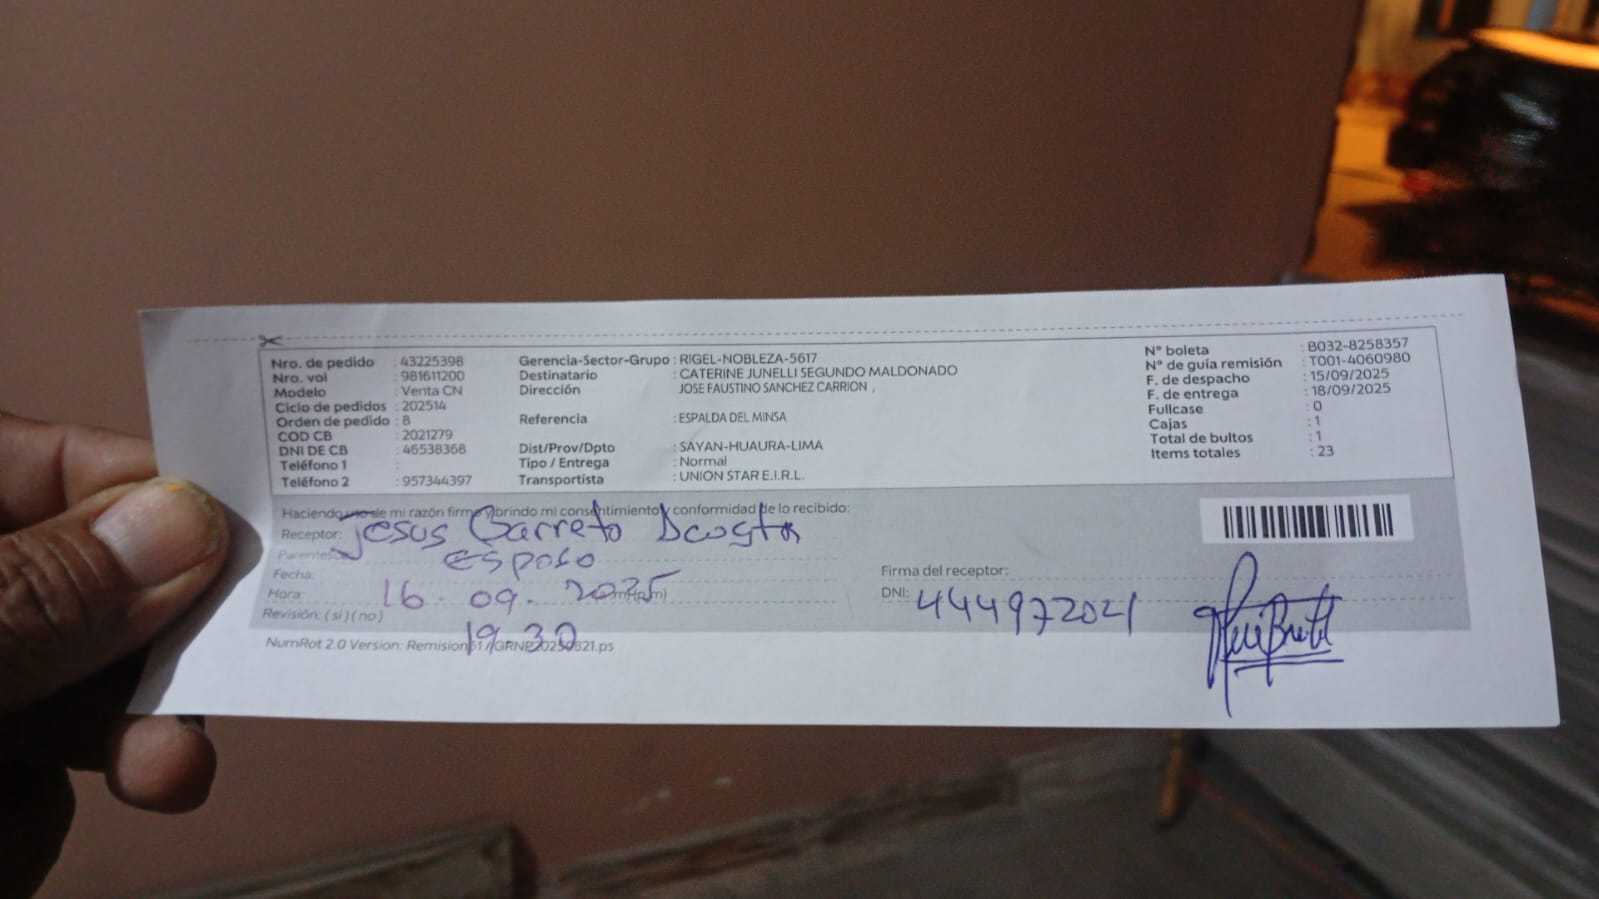 Nro. de pedido : 43225398
Nro. vol : 981611200
Modelo : Venta CN
Ciclo de pedidos : 202514
Orden de pedido : 8
COD CB : 2021279
DNI DE CB : 46538368
Teléfono 1 :
Teléfono 2 : 957344397
Gerencia-Sector-Grupo : RIGEL-NOBLEZA-5617
Destinatario : CATERINE JUNELLI SEGUNDO MALDONADO
Dirección JOSE FAUSTINO SANCHEZ CARRION ,
Referencia : ESPALDA DEL MINSA
Dist/Prov/Dpto : SAYAN-HUAURA-LIMA
Tipo / Entrega : Normal
Transportista : UNION STAR E.I.R.L.
N° boleta : B032-8258357
N° de guía remisión : T001-4060980
F. de despacho : 15/09/2025
F. de entrega : 18/09/2025
Fullcase : 0
Cajas : 1
Total de bultos : 1
Items totales : 23
Haciendo uso de mi razón firmo y brindo mi consentimiento y conformidad de lo recibido:
Receptor: Jesus Barreto Acosta
esposo
Fecha: 16.09.2025
Hora: 19 30
Revisión: ( si ) ( no )
Firma del receptor:
DNI: 444972021
NumRot 2.0 Version: Remision